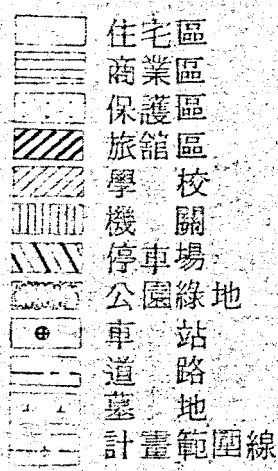 住宅區
商業區
保護區
旅館區
學校
機關
停車場
公園綠地
車站
道路
墓地
計畫範圍線